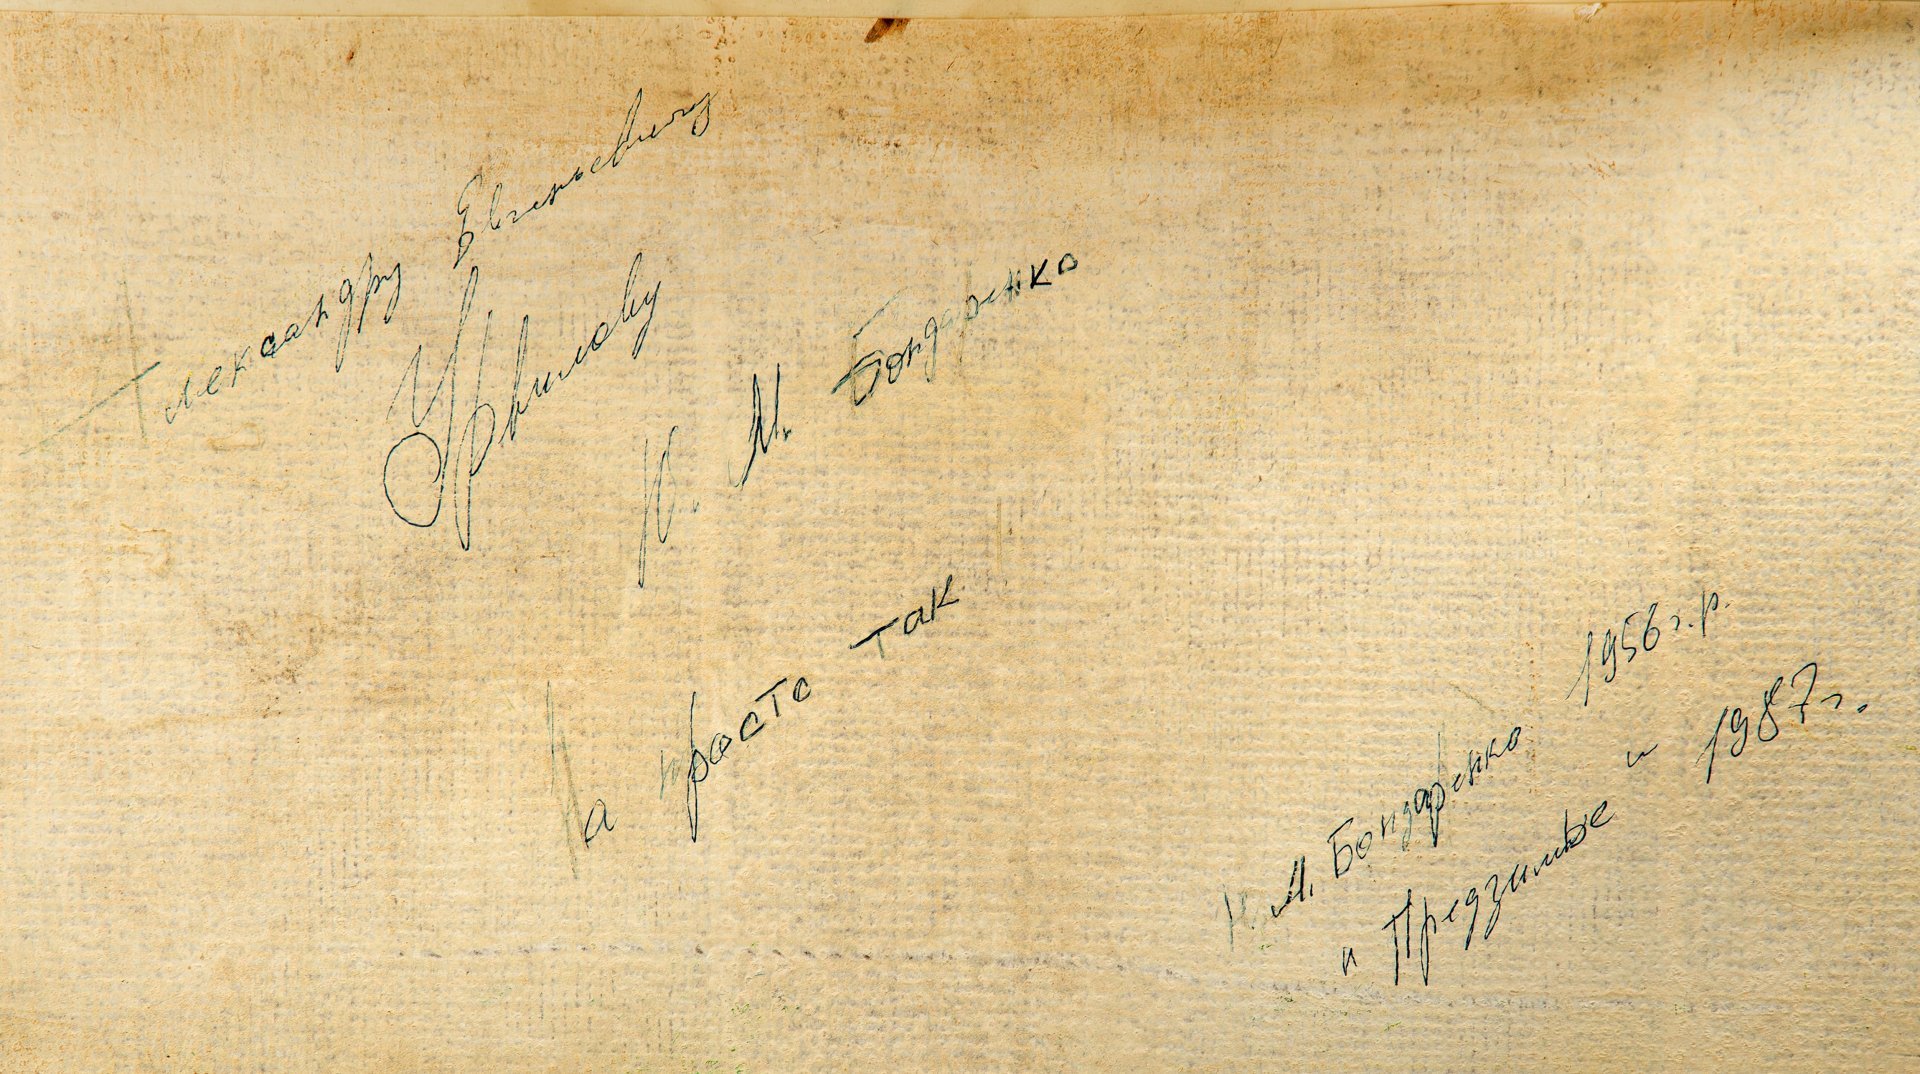 Александру Евгеньевичу
Урвилову
Н. М. Бондаренко
На просто так
Н. М. Бондаренко 1956 г.р.
"Предзимье" 1987 г.